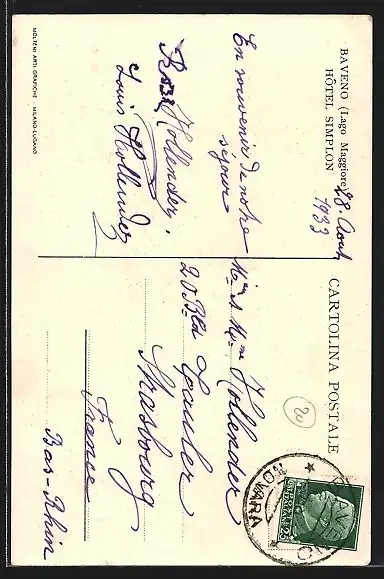 BAVENO (Lago Maggiore)
HÔTEL SIMPLON
28. Août
1933
En souvenir de notre
séjour
Hollender,
Louis Hollender
MOLTENI ARTI GRAFICHE - MILANO-LUGANO
CARTOLINA POSTALE
20
M. & Mme Hollender
20 Bld
Strasbourg
France
Bas-Rhin
BAVENO
NOVARA